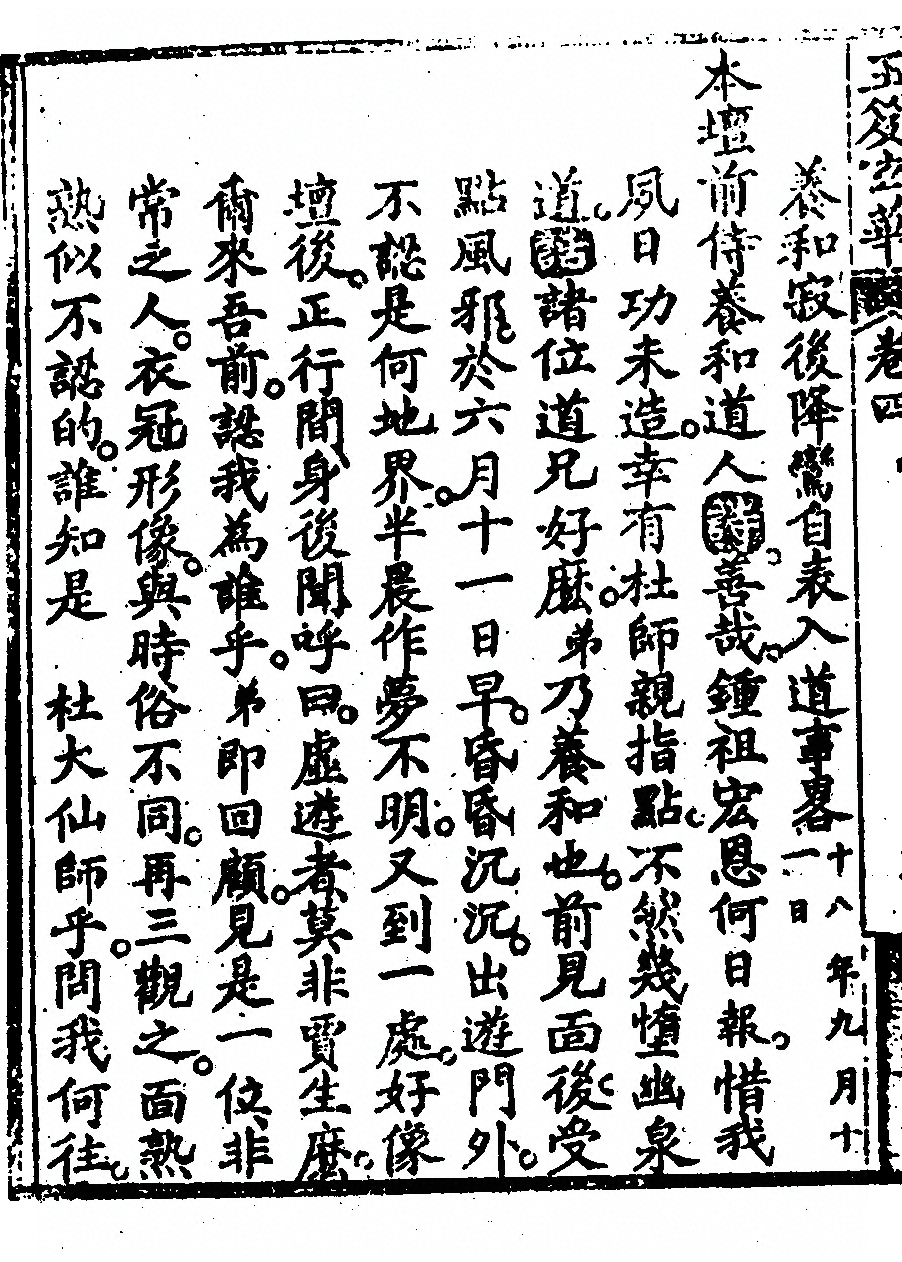 玉笈金華 卷四
養和寂後降鸞自表入道事畧 十八年九月十一日
本壇前侍養和道人 善哉。鍾祖宏恩何日報。惜我
夙日功未造。幸有杜師親指點。不然幾墮幽泉
道。 諸位道兄好麽。弟乃養和也。前見面後受
點風邪。於六月十一日早。昏昏沉沉。出遊門外。
不認是何地界。半晨作夢不明。又到一處。好像
壇後。正行間身後聞呼曰。虛遊者莫非賈生麽。
爾來吾前。認我為誰乎。弟即回顧。見是一位非
常之人。衣冠形像。與時俗不同。再三觀之。面熟
熟似不認的。誰知是 杜大仙師乎。問我何往。